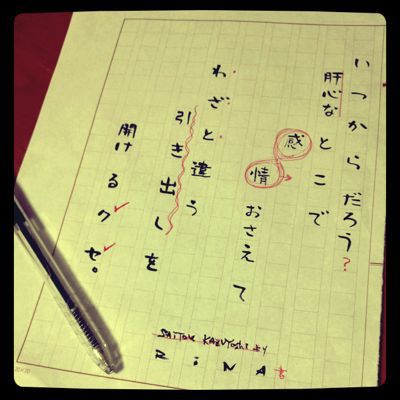 いつからだろう?
肝心なとこで
感情おさえて
わざと違う
引き出しを
開けるクセ。
SAITOU KAZUYOSHI BY
RiNA 書
20×20